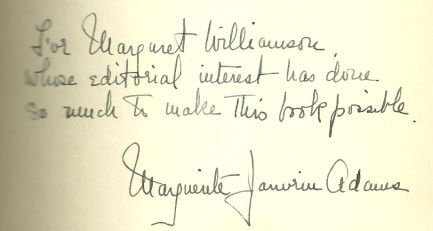 For Margaret Williamson,
whose editorial interest has done
so much to make this book possible.
Marguerite Janvrin Adams